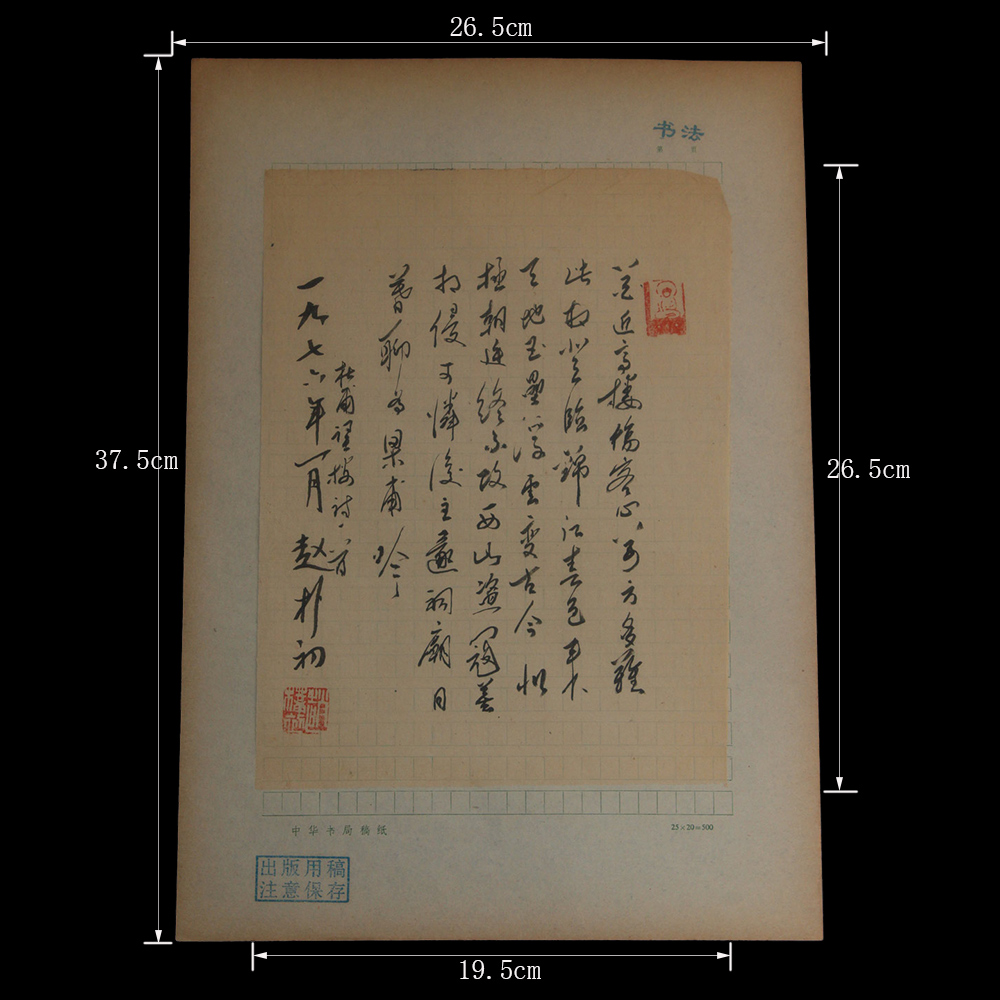 26.5cm
书法
第 页
花近高楼傷客心万方多難
此登臨錦江春色来
天地玉壘浮雲变古今北
極朝廷終不改西山盗寇莫
相侵可憐後主還祠廟日
暮聊为梁甫吟
杜甫登楼诗一首
一九七六年一月 赵朴初
37.5cm
26.5cm
中华书局稿纸
25×20=500
出版用稿
注意保存
19.5cm